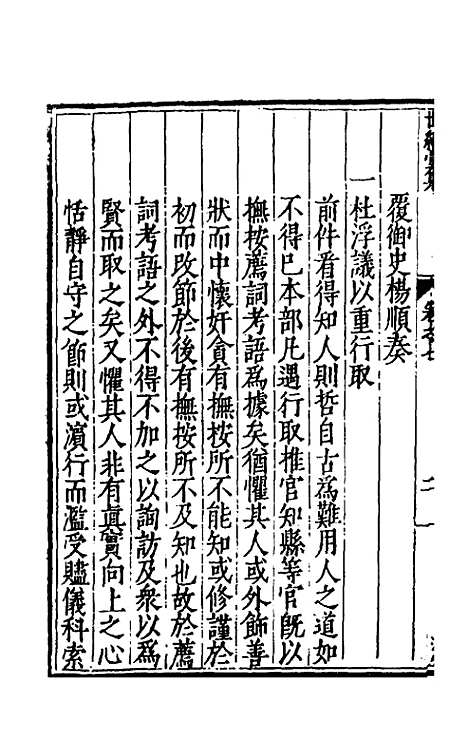 覆御史楊順奏
一杜浮議以重行取
前件看得知人則哲自古為難用人之道如
不得已本部凡遇行取推官知縣等官旣以
撫按薦詞考語為據矣猶懼其人或外飾善
狀而中懷奸貪有撫按所不能知或修謹於
初而改節於後有撫按所不及知也故於薦
詞考語之外不得不加之以詢訪及衆以為
賢而取之矣又懼其人非有真實向上之心
恬靜自守之節則或濵行而濫受贐儀科索